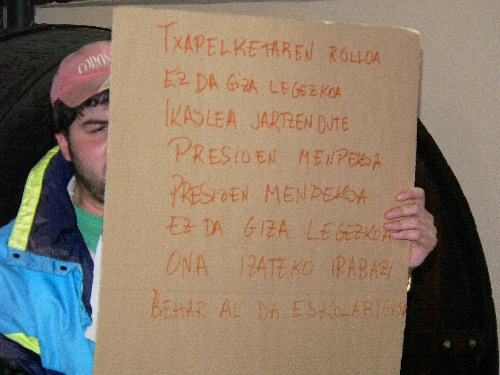 CORONA
TXAPELKETAREN ROLLOA
EZ DA GIZA LEGEZKOA
IKASLEA JARTZEN DUTE
PRESIOEN MENPEKOA
PRESIOEN MENDEKOA
EZ DA GIZA LEGEZKOA
ONA IZATEKO IRABAZI
BEHAR AL DA ESKOLARTEKOA